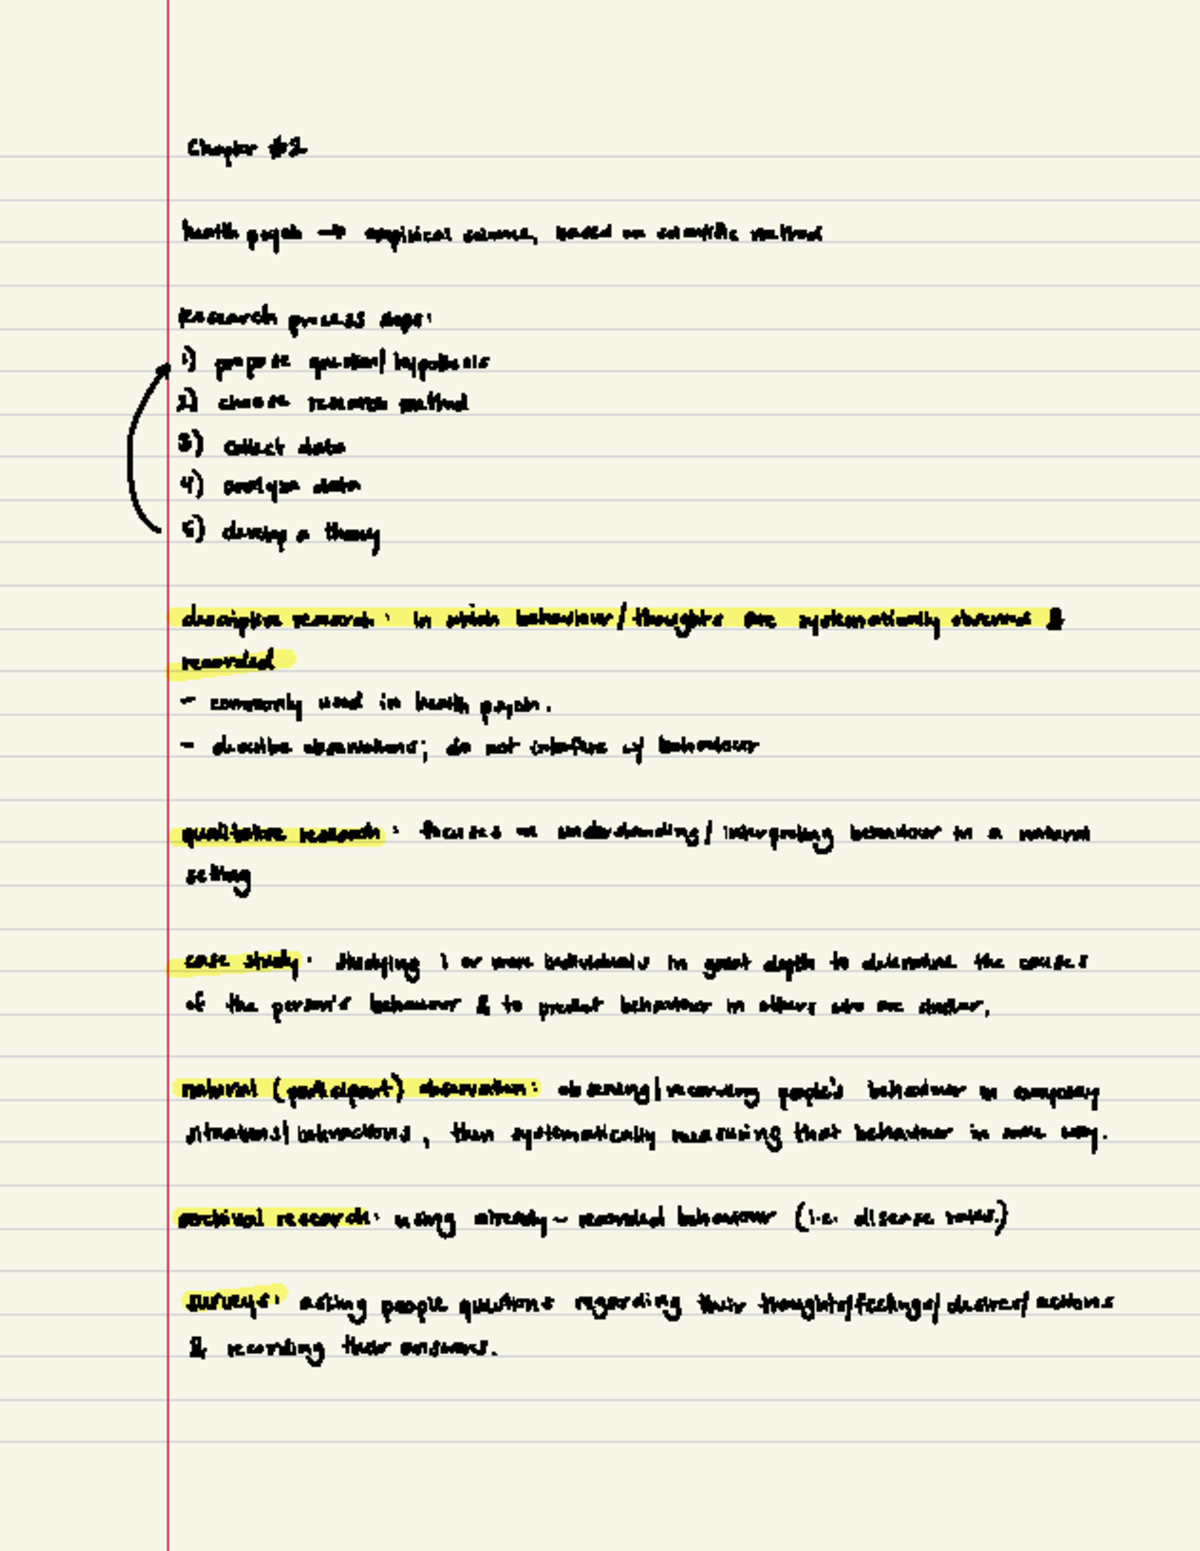 Chapter #2
health psych → empirical science, based on scientific method
Research process steps:
1) propose question/hypothesis
2) choose research method
3) collect data
4) analyze data
5) develop a theory
descriptive research: in which behaviour/thoughts are systematically observed &
recorded
- commonly used in health psych.
- describe observations; do not interfere w/ behaviour
qualitative research: focuses on understanding/interpreting behaviour in a natural
setting
case study: studying 1 or more individuals in great depth to determine the causes
of the person's behaviour & to predict behaviour in others who are similar.
natural (participant) observation: observing/recording people's behaviour in everyday
situations/interactions, then systematically measuring that behaviour in some way.
archival research: using already-recorded behaviour (i.e. disease rates.)
surveys: asking people questions regarding their thoughts/feelings/desires/actions
& recording their answers.